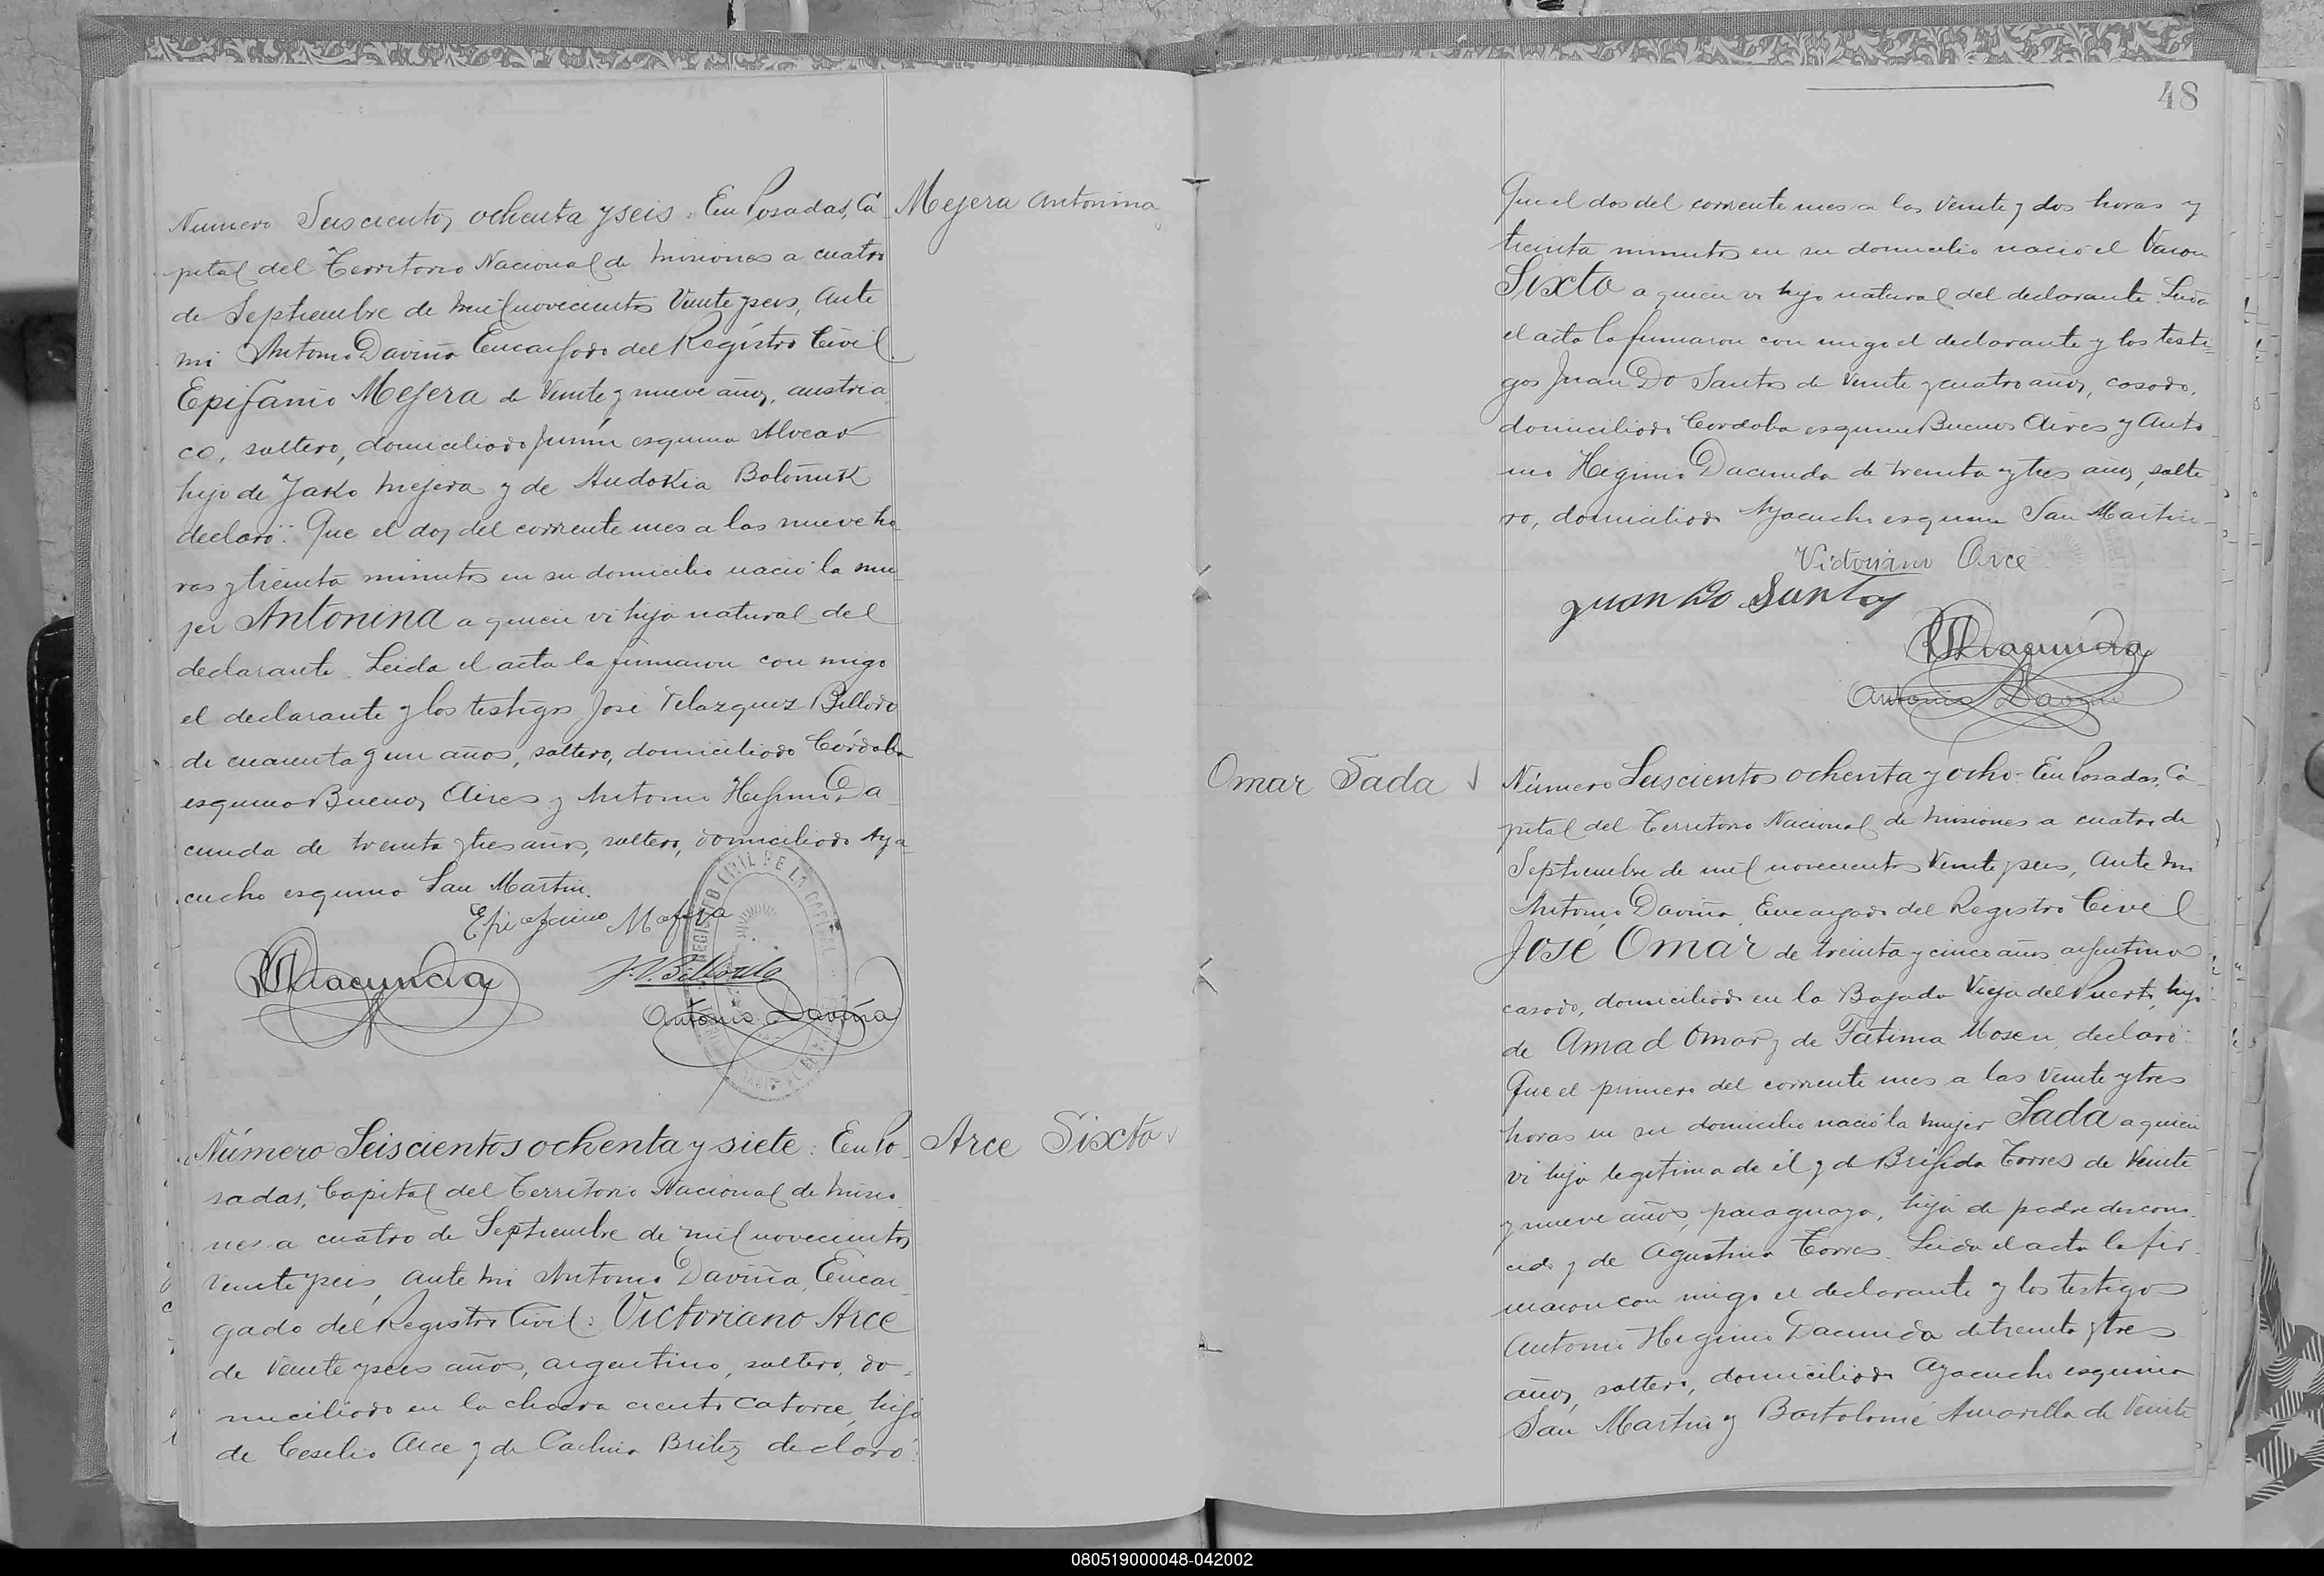 Mejera Antonina
Número Seiscientos ochenta y seis: En Posadas, Ca-
pital del Territorio Nacional de Misiones a cuatro
de Septiembre de mil novecientos Veinte y seis, Ante
mi Antonio Daviña Encargado del Registro Civil
Epifanio Mejera de Veinte y nueve años, austria-
co, soltero, domiciliado Junín esquina Alvear
hijo de Jako Mejera y de Audokia
declaró: Que el dos del corriente mes a las nueve ho-
ras y treinta minutos en su domicilio nació la mu-
jer Antonina a quien vi hija natural del
declarante. Leida el acta la firmaron con migo
el declarante y los testigos José Velazquez Billordo
de cuarenta y un años, soltero, domiciliado Córdoba
esquina Buenos Aires y Antonio Higinio Da-
cunda de treinta y tres años, soltero, domiciliado Aya-
cucho esquina San Martin.
Epifanio Mejera
J. V. Billordo
Antonio Daviña
REGISTRO CIVIL DE LA CAPITAL
Arce Sixto
Número Seiscientos ochenta y siete: En Po-
sadas, Capital del Territorio Nacional de Misio-
nes a cuatro de Septiembre de mil novecientos
Veinte y seis, Ante mi Antonio Daviña, Encar-
gado del Registro Civil: Victoriano Arce
de Veinte y seis años, argentino, soltero, do-
miciliado en la chacra ciento catorce, hijo
de Ceselio Arce y de Britez declaró:
48
Que el dos del corriente mes a las veinte y dos horas y
treinta minutos en su domicilio nació el Varon
Sixto a quien vi hijo natural del declarante. Leida
el acta la firmaron con migo el declarante y los testi-
gos Juan Do Santos de Veinte y cuatro años, casado,
domiciliado Cordoba esquina Buenos Aires y Anto-
nio Higinio Dacunda de treinta y tres años, solte-
ro, domiciliado Ayacucho esquina San Martin-
Victoriano Arce
Juan Do Santos
Antonio Daviña
Omar Sada
Número Seiscientos ochenta y ocho: En Posadas, Ca-
pital del Territorio Nacional de Misiones a cuatro de
Septiembre de mil novecientos Veinte y seis, Ante mi
Antonio Daviña, Encargado del Registro Civil
José Omar de treinta y cinco años argentino
casado, domiciliado en la Bajada Vieja del Puerto, hijo
de Amad Omar y de Fatima Mosen, declaró:
Que el primero del corriente mes a las veinte y tres
horas en su domicilio nació la mujer Sada a quien
vi hija legítima de él y de Brígida Torres de Veinte
y nueve años, paraguaya, hija de padre descono-
cido y de Agustina Torres. Leida el acta la fir-
maron con migo el declarante y los testigos
Antonio Higinio Dacunda de treinta y tres
años, soltero, domiciliado Ayacucho esquina
San Martin y Bartolomé Amarilla de Veinte
080519000048-042002